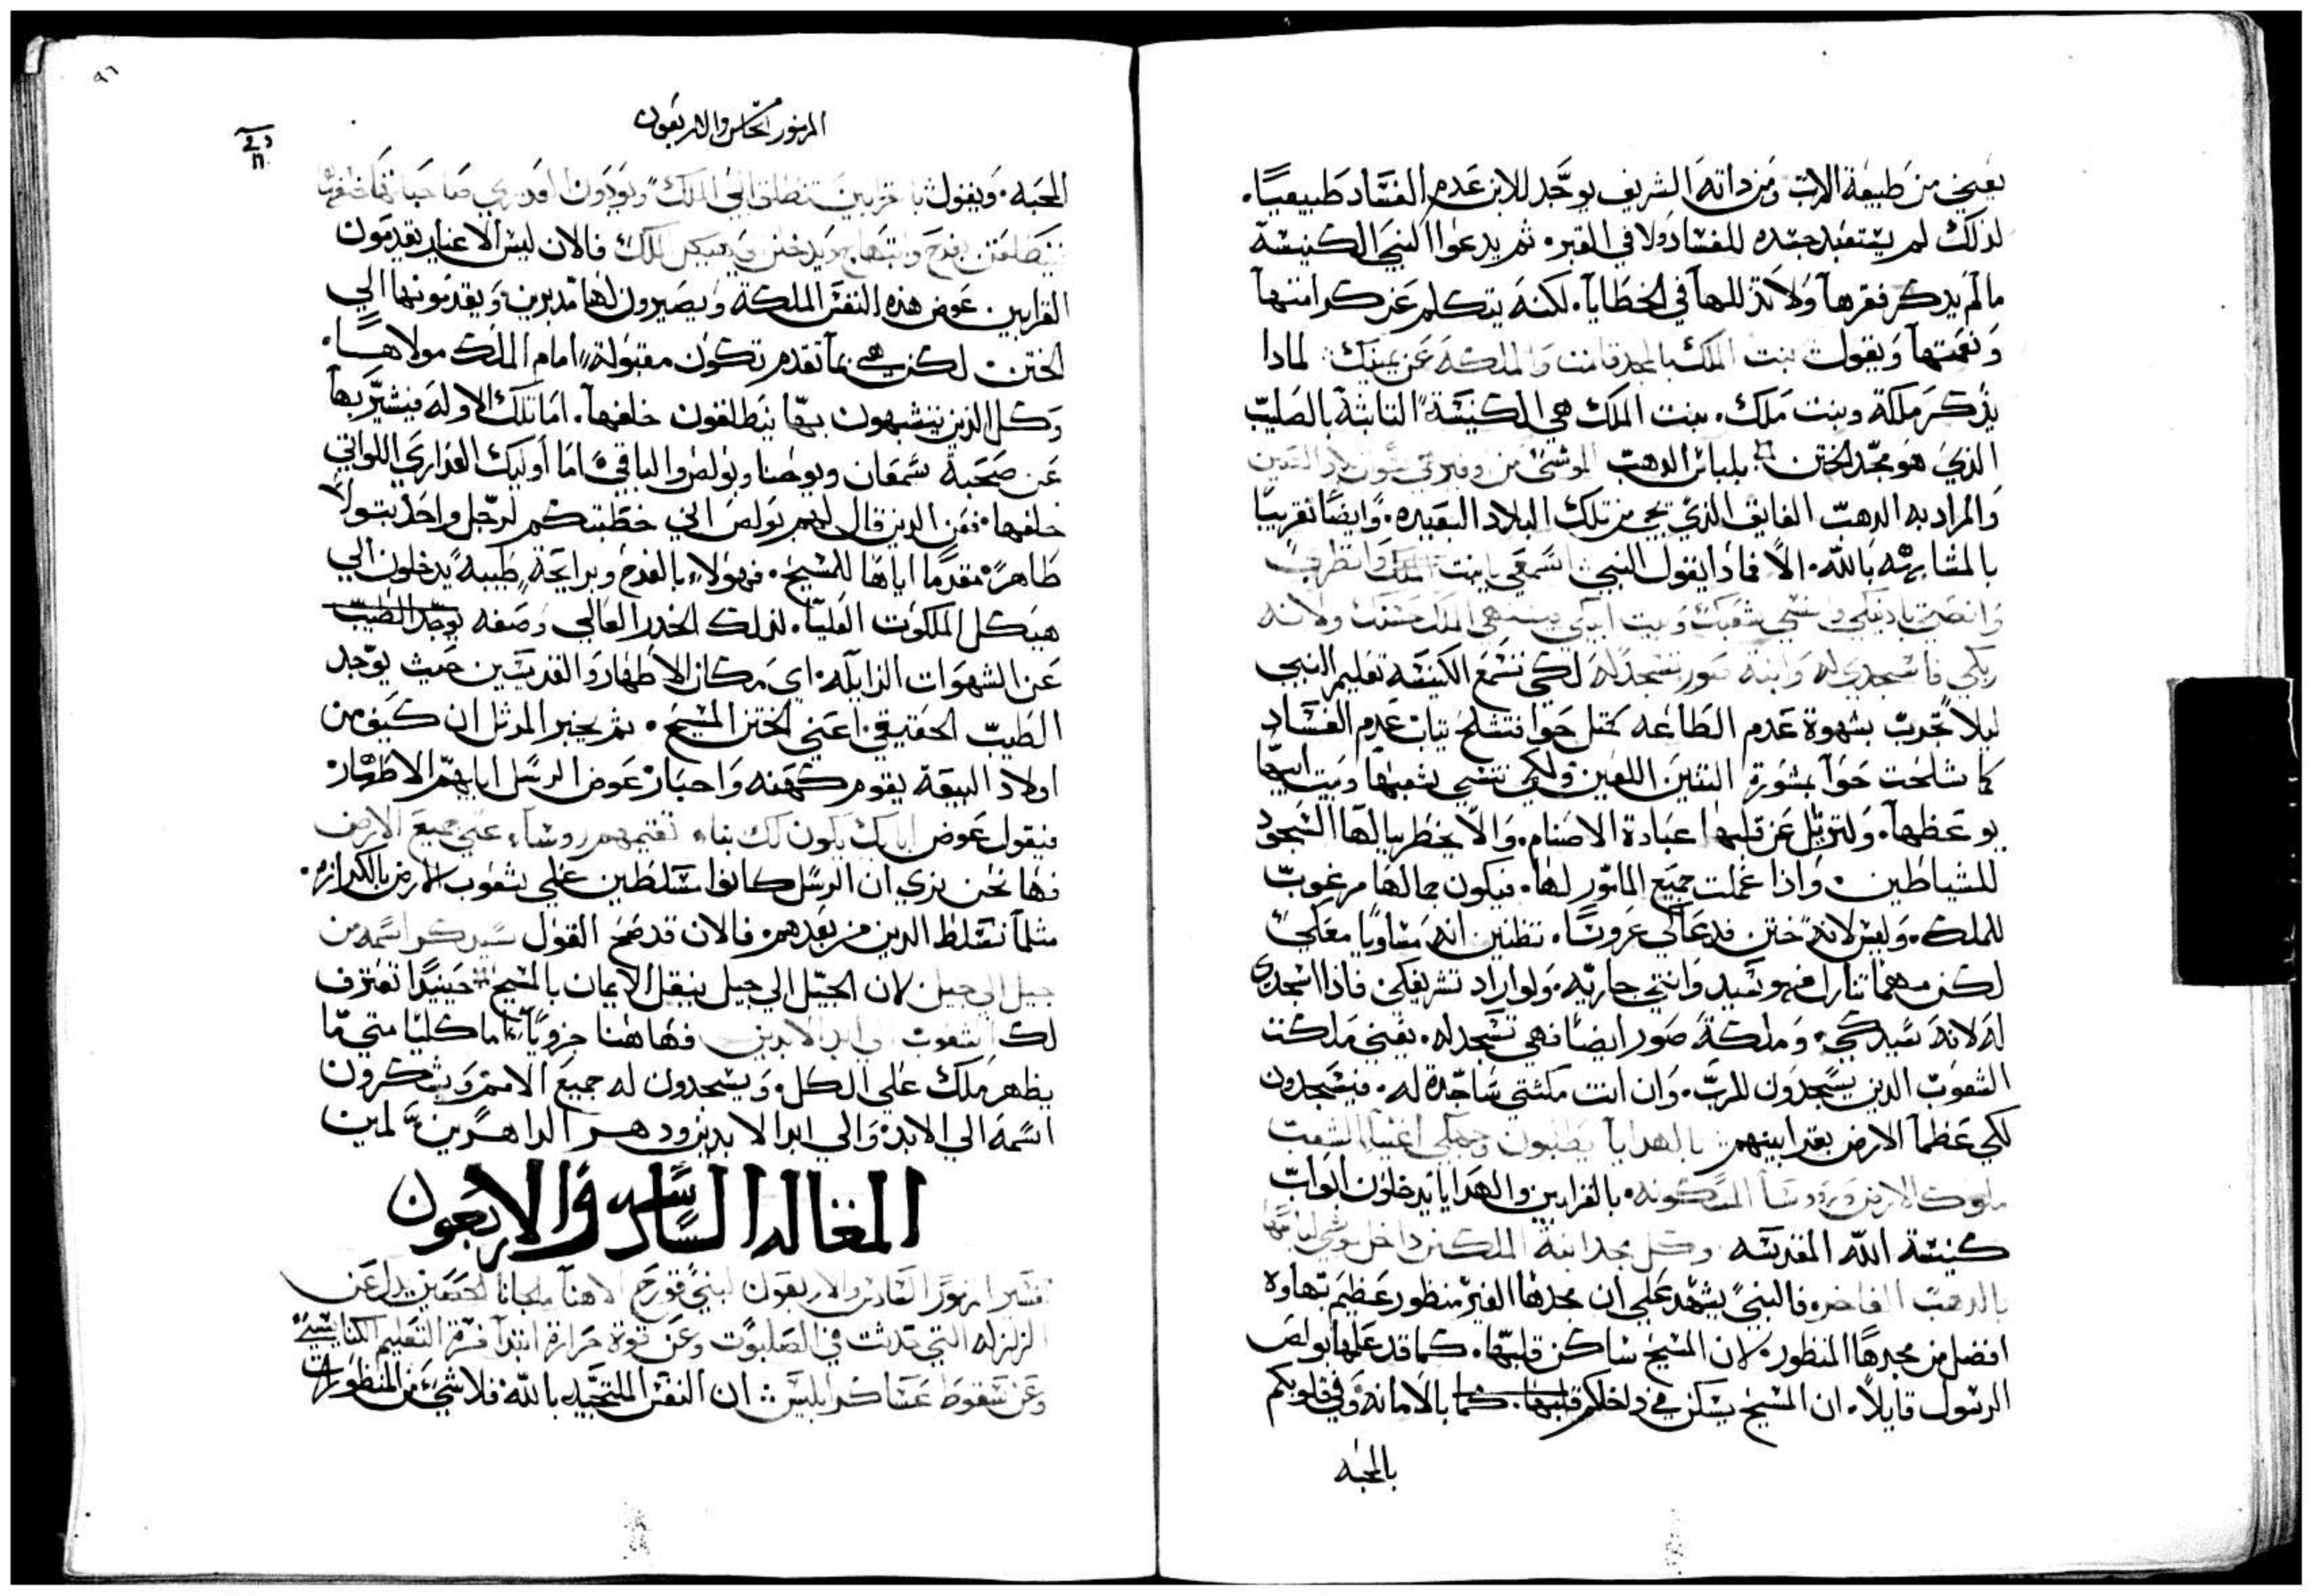 يعني من طبيعة الاب ومن داته الشريف يوجد للابن عدم الفساد طبيعيًا.
لذلك لم يستعبد جسده للفساد ولا في القبر. ثم يدعوا النبي الكنيسة
ما لم يدكر فقرها ولا تذللها في الخطايا. لكنه يتكلم عن كرامتها
ونعمتها ويقول بنت الملك بالمجد قامت والملكة عن يمينك لمادا
يذكر ملكة وبنت ملك. بنت الملك هي الكنيسة الثابتة بالصليب
الذي هو مجد الختن بلباس الدهب الموشى من
والمراد به الدهب الفايق الذي يجي من تلك البلاد البعيده. وايضًا تقريبًا
بالمشابهه بالله. الا فمادا يقول النبي اسمعي يا بنت الملك وانظري
وانصتي بادنيكي وانسي شعبك وبيت ابيكي فيشتهي الملك حسنك ولانه
ربكي فاسجدي له وابنة صور تسجد له لكي تسمع الكنيسه تعليم النبي
ليلا تجرب بشهوة عدم الطاعه كمثل حوا فتشلح تياب عدم الفساد
كما شلحت حوا بمشورة التنين اللعين ولكي تنسي شعبها وبيت ابيها
بوعظها. ولتزيل عن قلبها عبادة الاصنام. والا يخطر ببالها السجود
للشياطين. وادا عملت جميع المامور لها. فيكون جمالها مرغوب
للملك. وليس لانه ختن قد عالي عروسًا. تظنين انه مساويًا معكي
لكن مهما تنازل فهو سيد وانتي جاريه. ولو اراد تشريفكي فاذا اسجدي
له لانه سيدكي. وملكة صور ايضًا فهي تسجد له. يعني ملكت
الشعوب الدين يسجدون للرب. وان انت مكثتي ساجدة له. فيسجدون
لكي عظما الارض بقرابينهم بالهدايا يطلبون وجهكي اغنيا الشعب
ملوك الارض وروسا المسكونه. بالقرابين والهدايا يدخلون ابواب
كنيسة الله المقدسه وكل مجد ابنة الملك من داخل
بالدهب الفاخره فالنبي يشهد علي ان مجدها الغير منظور عظيم بهاوه
افضل من مجدها المنظور. لان المسيح ساكن قلبها. كما قد علمها بولص
الرسول قايلاً. ان المسيح يسكن في داخلكم قلبها. كما بالامانه وفي قلوبكم
بالمحبه
٩٦
المزمور الخامس والاربعون
المحبه. ويقول
بفرح وابتهاج ويدخلن في هيكل الملك فالان ليس الاغيار يقدمون
القرابين عوض هذه النفس الملكة ويصيرون لها مدبرين ويقدمونها الي
الختن. لكن هي بما تقدم تكون مقبولة امام الملك مولاها.
وكل الذين يتشبهون بها ينطلقون خلفها. اما تلك الاوله فيشير بها
عن صحبة سمعان ويوحنا وبولص والباقي اما اوليك العذاري اللواتي
خلفها. فمن الدين قال لهم بولص اني خطبتكم لرجل واحد بتولاً
طاهرً مقدمًا اياها للمسيح. فهولا بالفرح وبرايحة طيبة يدخلون الي
هيكل الملكوت العليا. لذلك الخدر العالي وصفه يوجد الطيب
عن الشهوات الزايله. اي مكان الاطهار والقديسين حيث يوجد
الطيب الحقيقي اعني الختن المسيح. ثم يخبر المرتل ان كيف من
اولاد البيعة يقوم كهنه واحبار عوض الرسل ابايهم الاطهار
فيقول عوض ابايك يكون لك بناء تقيمهم روساء علي جميع الارض
فها نحن نري ان الرسل كانوا مسلطين علي شعوب الارض بالكرازه.
مثلما تسلط الدين من بعدهم. فالان قد صح القول سيدكر اسمه من
جيل الي جيل لان الجيل الي جيل ينقل الايمان بالمسيح حينيدًا تعترف
لك الشعوب الي ابد الابدين فها هنا جزويًا اما كليًا متي ما
يظهر ملك علي الكل. ويسجدون له جميع الامم ويشكرون
اسمه الي الابد. والي ابد الابدين ودهر الداهرين امين
المقاله السادسه والاربعون
تفسير المزمور السادس والاربعون لبني قورح الاهنا ملجانا
الزلزله التي حدثت في الصلبوت وعن قوة حرارة
وعن سقوط عساكر ابليس ان النفس الملتجيه بالله. فلا شي من المنظورات